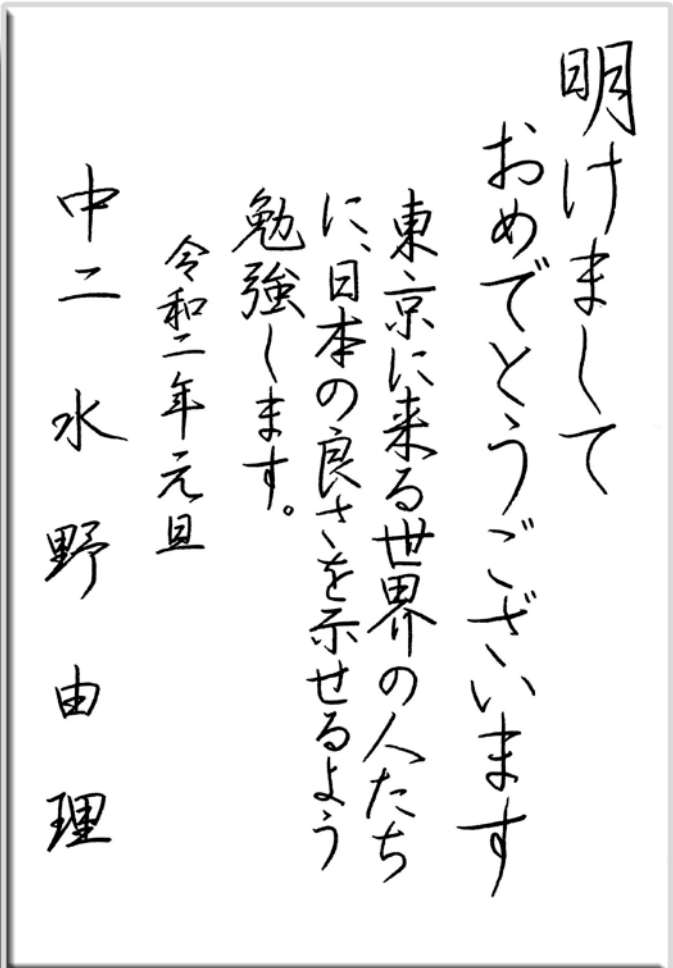 明けまして
おめでとうございます
東京に来る世界の人たち
に、日本の良さを示せるよう
勉強します。
令和二年元旦
中二 水野由理